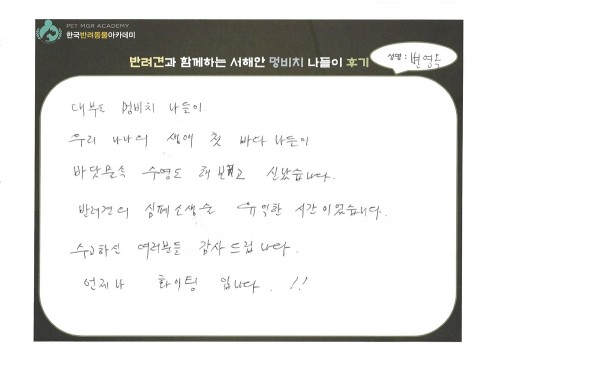 PET MGR ACADEMY
한국반려동물아카데미
반려견과 함께하는 서해안 멍비치 나들이 후기
성명 : 변영옥
대부도 멈비치 나들이.
우리 나나의 생애 첫 바다 나들이
바닷물속 수영도 해보고 신났습니다.
반려견의 심폐소생술 유익한 시간이었습니다.
수고하신 여러분들 감사드립니다.
언제나 화이팅 입니다. !!